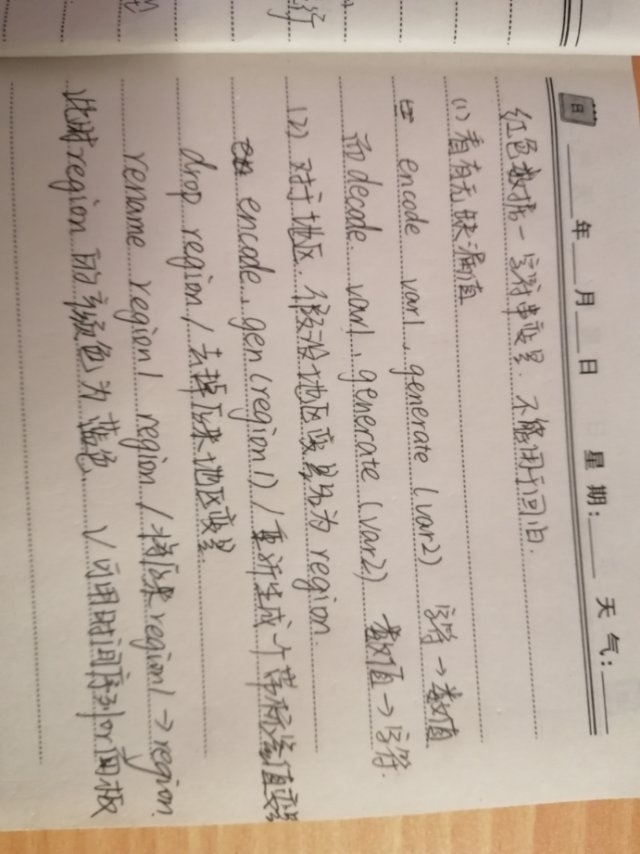 日
____年____月____日 星期:____ 天气:____
红色数据一字符串变量. 不能用于回归.
(1) 看有无缺漏值
encode var1, generate (var2) 字符→数值
而 decode var1, generate (var2) 数值→字符.
(2) 对于地区. 假设地区变量名为 region.
encode, gen(region1) / 重新生成一个带标签值变量
drop region / 去掉原来地区变量
rename region1 region / 将原来region1→region.
此时region 的颜色为蓝色 √ 可用时间序列or面板